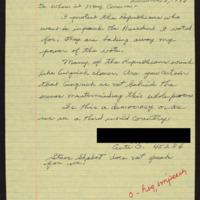 To whom it may concern:
I protest the Republicans who
want to impeach the President I voted
for. They are taking away my
power of the vote.
Many of the Republicans wreck
like Gingrich clones. Are you certain
that Gingrich is not behind the
scenes masterminding this whole
Is this a democracy or are
we in a third world Country.
45226
Steve Chabot does not speak
for me!
impeach